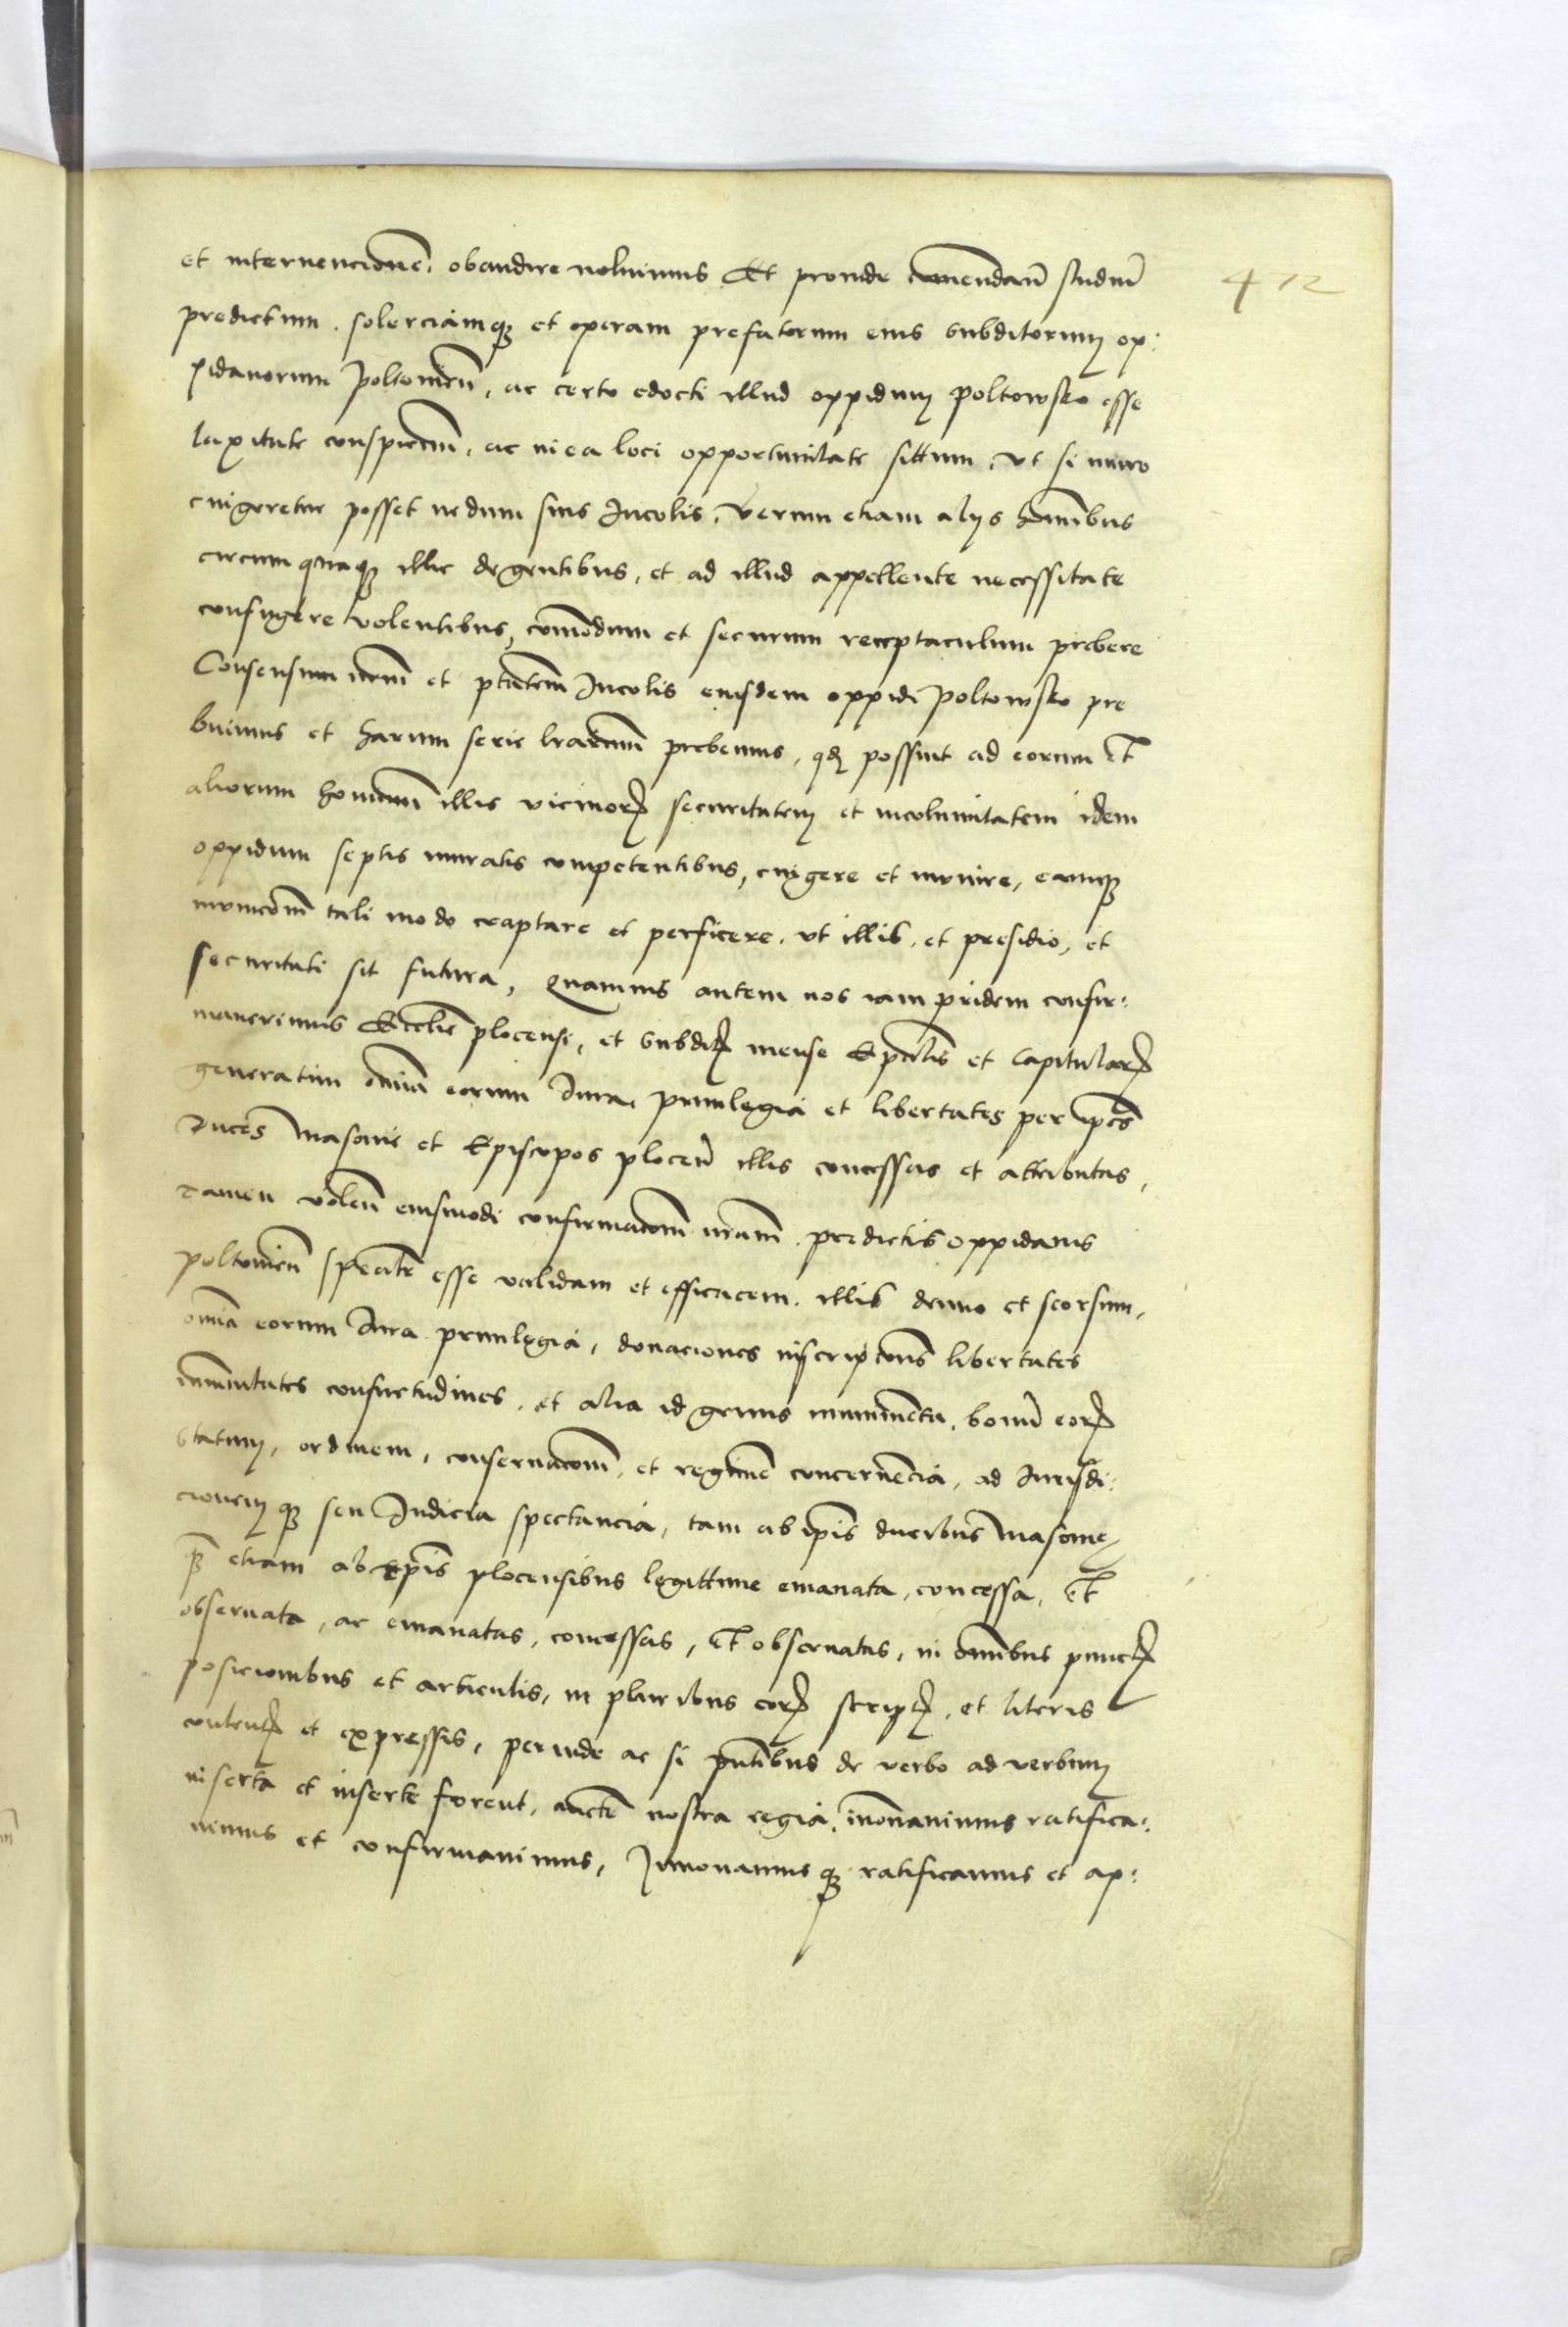 et intervencionē, obaudire noluimus Et proinde cōmendan̄ studiū
predictum. solerciamq3 et operam prefatorum eius subditorum op:
pidanorum Poltovień, ac certo edocti illud oppidum Poltowsko esse
laxitate conspicuū, ac in ea loci opportunitate sittum, ut si muro
cingeretur posset nedum suis Incolis, verum etiam alijs hoīnibus
circumquaq3 illic degentibus, et ad illud appellente necessitate
confugere volentibus, cōmodum et securum receptaculum prebere
Consensum nrūm et ptātem Incolis eiusdem oppidi Poltowsko pre
buimus et harum serie lrārum prebemus, qd possint ad eorum et
aliorum hominū illis vicinor securitatem et incolumitatem idem
oppidum septis muratis competentibus, cingere et munire, eamq3
municōm tali modo coaptare et perficere, ut illis, et presidio, et
securitati sit futura, Quamvis autem nos iam pridem confir:
maverimus Ecclīe plocensi, et subdit mense Epālis et Capitular
generatim omīa eorum Iura, privilegia et libertates per ipōs
Duces Masovie et Episcopos plocen̄ illis concessas et attributas,
Tamen volen̄ eiusmodi confirmacōm nrām. predictis oppidanis
Poltovień speālr esse validam et efficacem. illis denuo et seorsum,
omīa eorum Iura privilegia, donaciones inscripcōns libertates
immūtates consuetudines, et alia id genus munimenta, bonū eor
statum, ordinem, conservacōm, et regimē concernencia, ad Iurisdi:
cionemq3 seu Iudicia spectancia, tam ab ipīs ducibus Masovie
q3 etiam ab Epīs plocensibus legittime emanata, concessa, et
observata, ac emanatas, concessas, et observatas, in omībus punct
posicionibus et articulis, in pluribus eor script, et literis
content et expressis, perinde ac si pntībus de verbo ad verbum
inserta et inserte forent, auctē nostra regia, innovavimus ratifica:
vimus et confirmavimus, Innovamusq3 ratificamus et ap:
412